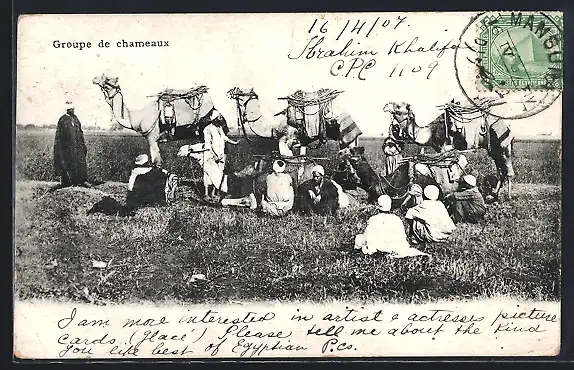 Groupe de chameaux
16/4/07.
Ibrahim Khalifa
CPC 1109
MANSOU
IV
I am more interested in artist & actresses picture
cards (Glacé) Please tell me about the kind
you like best of Egyptian P.cs.